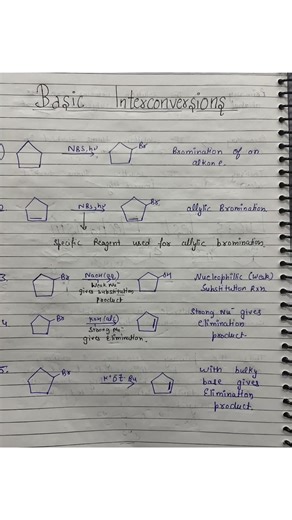 Basic Interconversions
NBS, hν
Br
Bromination of an
alkane.
2.
NBS, hν
Br
allylic Bromination
specific Reagent used for allylic bromination
3.
Br
NaOH(aq)
Weak Nu⁻
gives substitution
Product
OH
Nucleophilic (Weak)
Substitution Rxn
4
Br
KOH (alc)
Strong Nu⁻
gives Elimination.
Strong Nu⁻ gives
elimination
product.
5.
Br
Bu
With bulky
base gives
Elimination
product